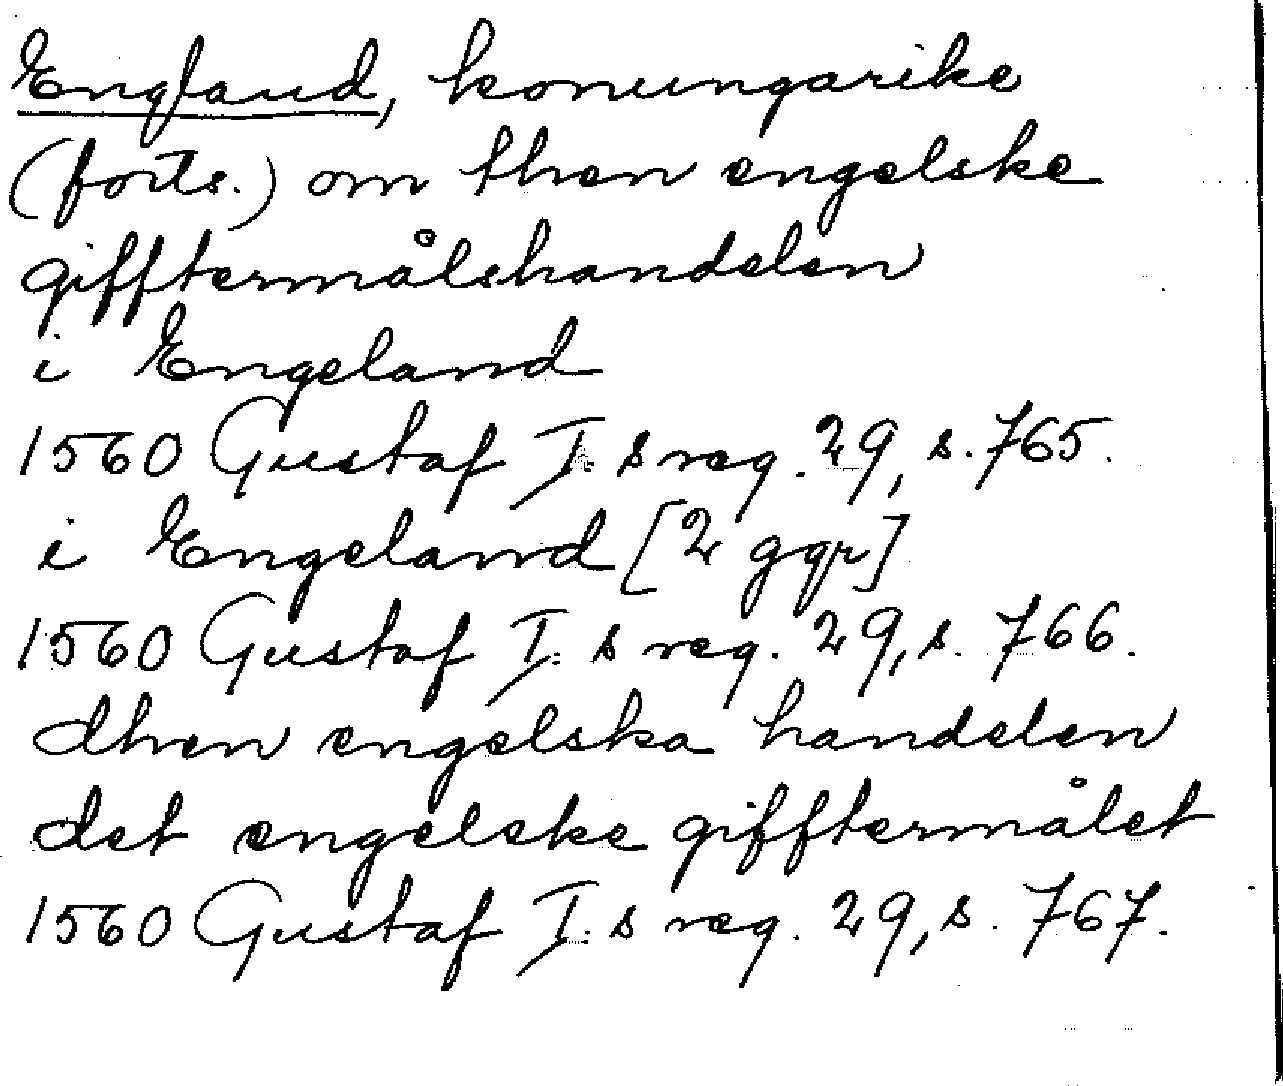 England, konungarike
(forts.) om then engelske
gifftermålshandelen
i Engeland
1560 Gustaf I:s reg. 29, s. 765.
i Engeland [2 ggr]
1560 Gustaf I:s reg. 29, s. 766.
dhen engelska handelen
det engelske gifftermålet
1560 Gustaf I:s reg. 29, s. 767.